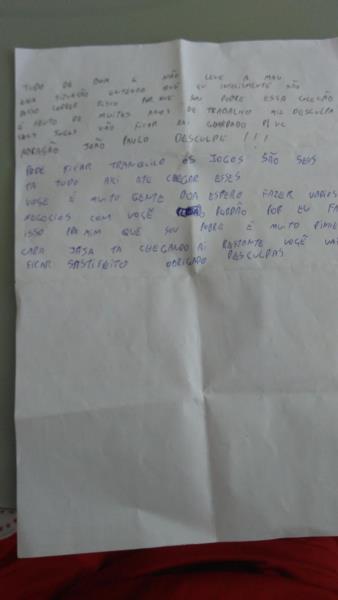 TUDO DE BOM E NÃO LEVE A MAU
UMA SITUAÇÃO QUE EU SIMLISMENTE NÃO
POSSO CORRER RISCO POR QUE SOU POBRE ESSA COLEÇÃO
É FRUTO DE MUITOS ANOS DE TRABALHO MIL DESCULPA
SEUS JOGOS VÃO FICAR AKI GUARDADO P/ VC
ABRAÇÃO JOÃO PAULO DESCULPE !!!
PODE FICAR TRANQUILO OS JOGOS SÃO SEUS
TA TUDO AKI ATE CHEGAR ESSES
VOCE É MUITO GENTE BOA ESPERO FAZER VARIOS
NEGOCIOS COM VOCÊ PERDÃO POR EU FA
ISSO PRA MIM QUE SOU POBRE É MUITO DINHE
CARA JAJA TA CHEGANDO AI BASTANTE VOCÊ VAI
FICAR SASTIFEITO OBRIGADO DESCULPAS